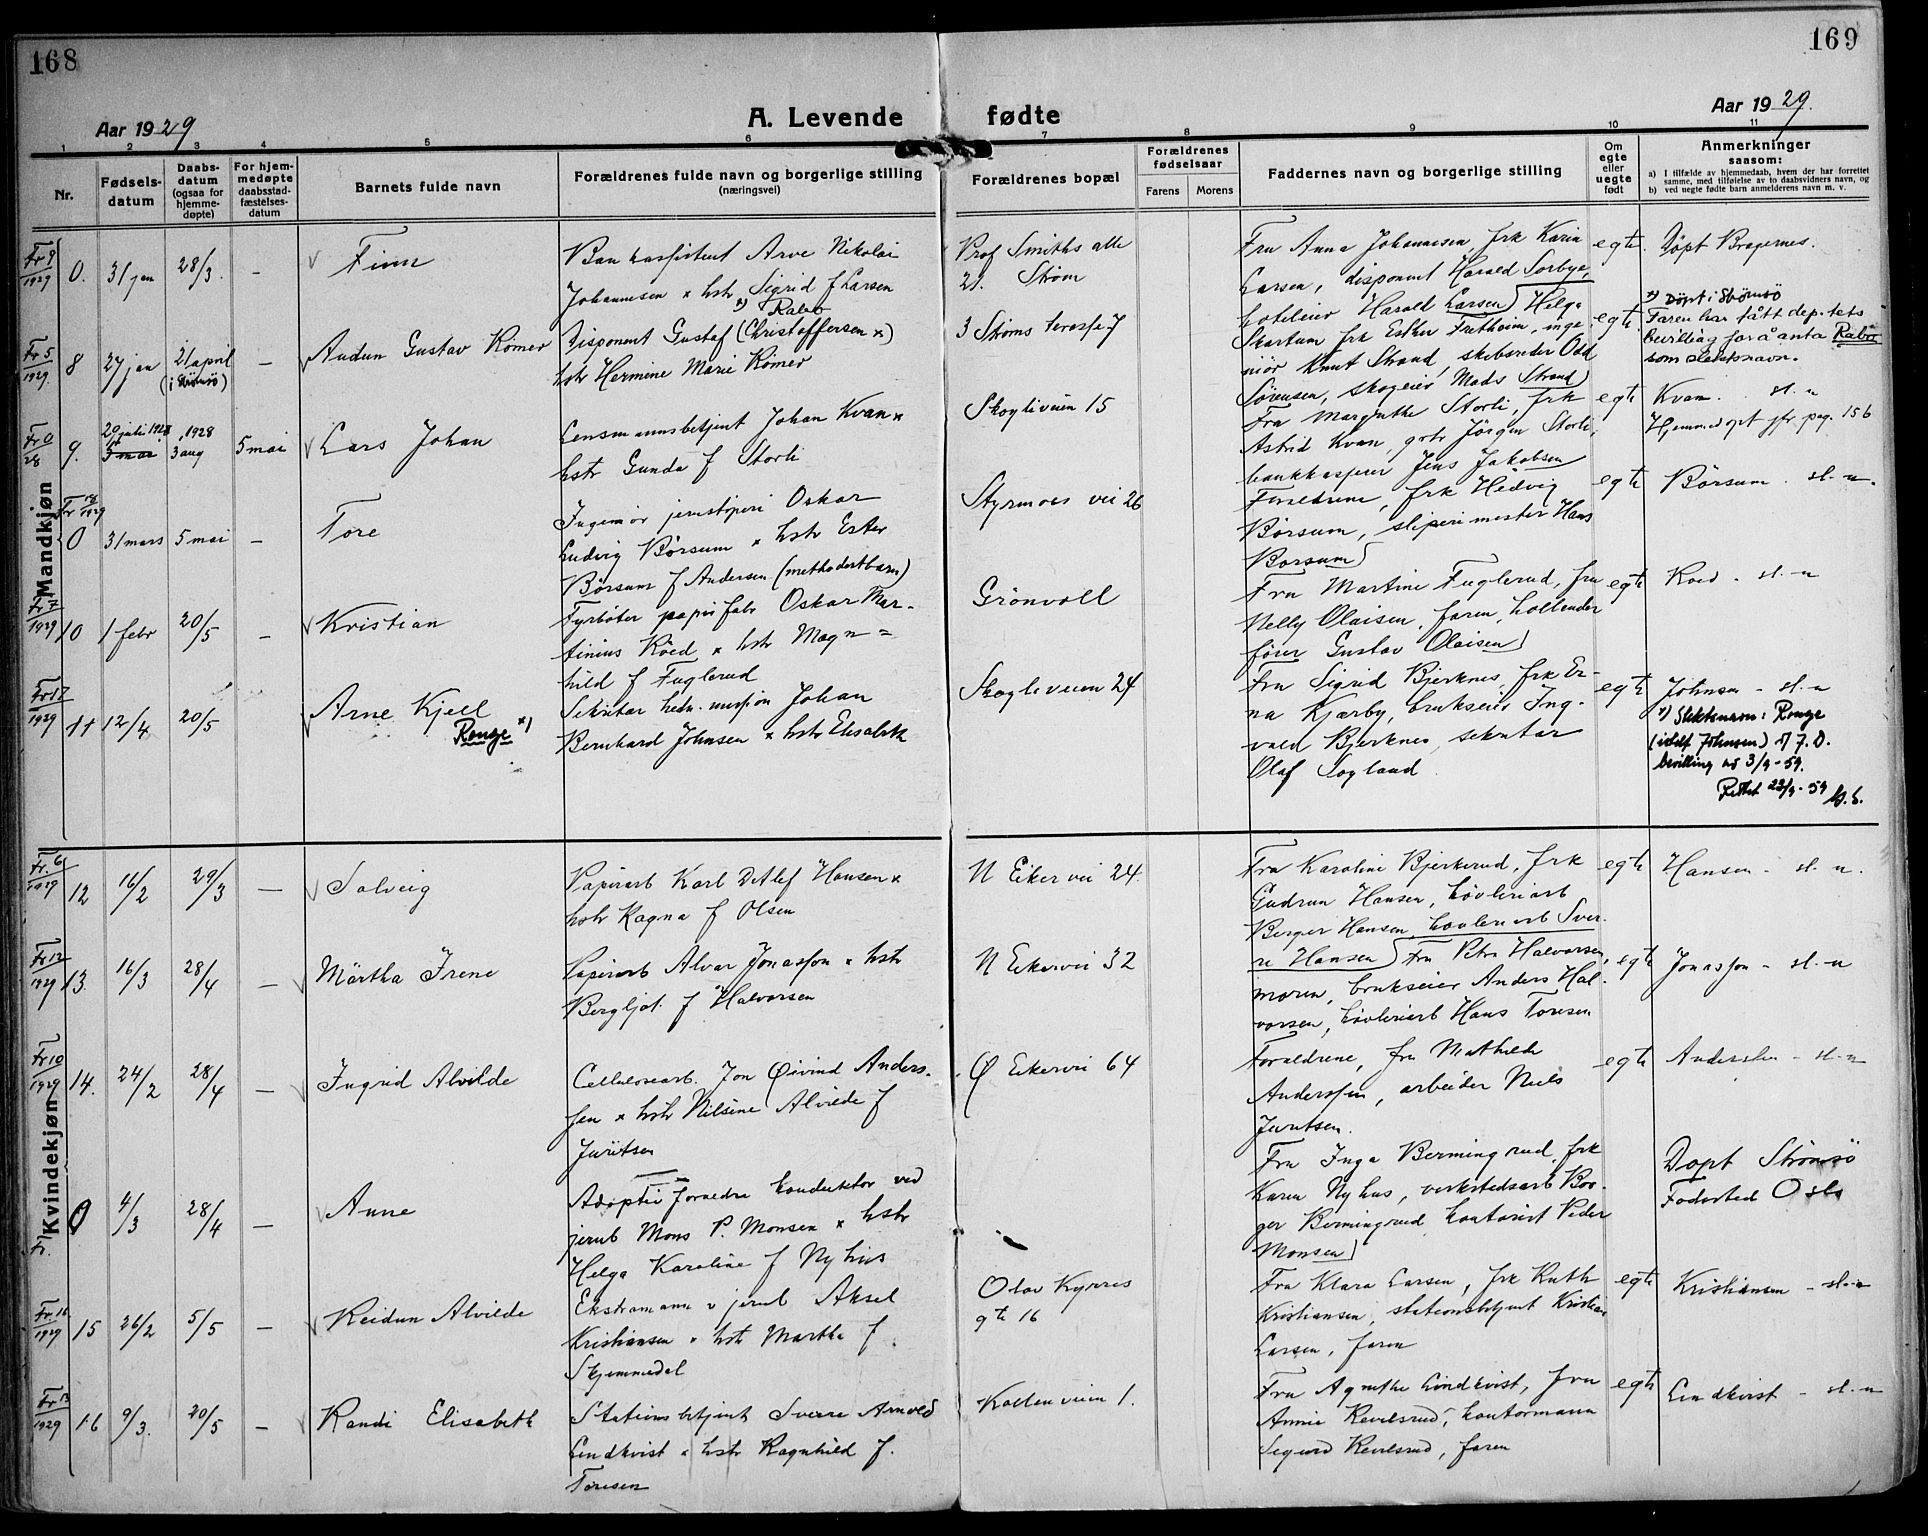 168
169
Aar 1929
A. Levende fødte
Aar 1929.
1 2 3 4 5 6 7 8 9 10 11
Nr.
Fødselsdatum
Daabsdatum (ogsaa for hjemmedøpte)
For hjemmedøpte daabsstadfæstelsesdatum
Barnets fulde navn
Forældrenes fulde navn og borgerlige stilling (næringsvei)
Forældrenes bopæl
Forældrenes fødselsaar
Farens Morens
Faddernes navn og borgerlige stilling
Om egte eller uegte født
Anmerkninger saasom:
a) I tilfælde av hjemmedaab, hvem der har forrettet samme, med tilføielse av to daabsvidners navn, og
b) ved uegte fødte barn anmelderens navn m. v.
Mandkjøn
Fr 9/1929 0. 31 jan 28/3. - Finn
Arve Nikolai
Johannesen * hstr Sigrid f Larsen
Prof Smiths alle
21. Strøm
Fru Anna Johannesen, frk Karin
Larsen, disponent Harald Sorbye,
hoteleier Harald Larsen
egte.
Døpt Bragernes.
Fr 5/1929. 8 27 jan 21 april (i Strømsö) - Audun Gustav Römer
*) Rabo
Disponent Gustaf (Christoffersen *)
hstr Hermine Marie Römer
3 Strøms terasse 7
Helga
Skartum frk Esther Fretheim, inge
niör Knut Strand, skibsreder Odd
Sörensen, skogeier Mads Strand
egte.
*) Döpt i Strömsö
Faren har fått dep-tets
bevilling for å anta Rabo
som slektsnavn.
Fr 0/28 9. 20 juli 1928 5 mai 1928 3 aug 5 mai Lars Johan
Lensmannsbetjent Johan Kvan *
hstr Gunda f Storli
Skogliveien 15
Fra Margrethe Storli, frk
Astrid Kvan, grbr Jörgen Storli,
bankkasserer Jens Jakobsen
egte
Kvan. sl. u
Hjemmedöpt jfr pag. 156
Fr 18/1929 0 31 mars 5 mai - Tore
Ingeniör jernstöperi Oskar
Ludvig Börsum * hstr Ester
Börsum f Andersen (methodistbarn)
Styrmoes vei 26
Foreldrene, frk Hedvig
Börsum, sliperimester Hans
Borsum
egte
Börsum. sl. u.
Fr 7/1929 10 1 febr 20/5 - Kristian
Fyrböter papirfabr Oskar Mar-
tinius Röed * hstr Magn=
hild f Fuglerud
Grönvoll
Fru Martine Fuglerud, fru
Nelly Olaisen, faren, hollender
förer Gustav Olaisen
egte
Roed - sl. u
Fr 17/1929 11 12/4 20/5 Arne Kjell
Ronge *)
Sekretær hedn. misjon Johan
Bernhard Johnsen * hstr Elisabeth
Skogliveien 24
Fru Sigrid Bjerknes, frk Er-
na Kjærby, brukseier Ing-
vald Bjerknes, sekretær
Olaf Sogland.
egte
Johnsen - sl. u
*) Slektsnavn: Ronge
(istf. Johnsen) if J.D.
bevilling av 3/9-59.
Rettet 22/9-59
Kvindekjøn
Fr. 6/1929 12 16/2 29/3 - Solveig
Papirarb Karl Detlef Hansen *
hstr Ragna f Olsen
N Eikervei 24.
Fra Karoline Bjerkerud, frk
Gudrun Hansen, hövleriarb
Berger Hansen, hövleriarb Sver-
re Hansen
egte
Hansen - sl. u.
Fr 12/1929 13. 16/3 28/4 - Märtha Irene
Papirarb Alvar Jonasson * hstr
Bergljot f Halvorsen
N Eikervei 32
Fru Petra Halvorsen,
moren, brukseier Anders Hal-
vorsen, hövleriarb Hans Toresen
egte
Jonasson - sl. u
Fr 10/1929 14. 24/2 28/4 - Ingrid Alvilde
Cellulosearb. Jon Öivind Anders-
sen * hstr Nilsine Alvilde f
Juritsen
Ø Eikervei 64
Foreldrene, fru Mathilde
Anderssen, arbeider Niels
Juritsen.
egte
Anderssen - sl. u
Fr. 0 4/3 28/4 - Anne
Adoptiv foreldre konduktör ved
jernb Mons P. Monsen * hstr
Helga Karoline f Nyhus
Fru Inga Bermingrud, frk
Karen Nyhus, verkstedsarb Bor-
ger Bermingrud, kontorist Peder
Monsen
Dopt Strömsö
Fodested Oslo
Fr 16/1929 15 26/2 5/5 - Reidun Alvilde
Ekstramann v jernb Aksel
Kristiansen * hstr Martha f.
Skjemmedal
Olav Kyrres
gte 16
Fru Klara Larsen, frk Ruth
Kristiansen, stationsbetjent Kristian
Larsen, faren
egte
Kristiansen - sl. u
Fr 13/1929 16 9/3. 20/5 - Randi Elisabeth
Stationsbetjent Sverre Arnold
Lindkvist * hstr Ragnhild f.
Toresen
Kollenveien 1.
Fru Agnethe Lindkvist, fru
Annie Revelsrud, kontormann
Sigurd Revelsrud, faren
egte
Lindkvist - sl. u